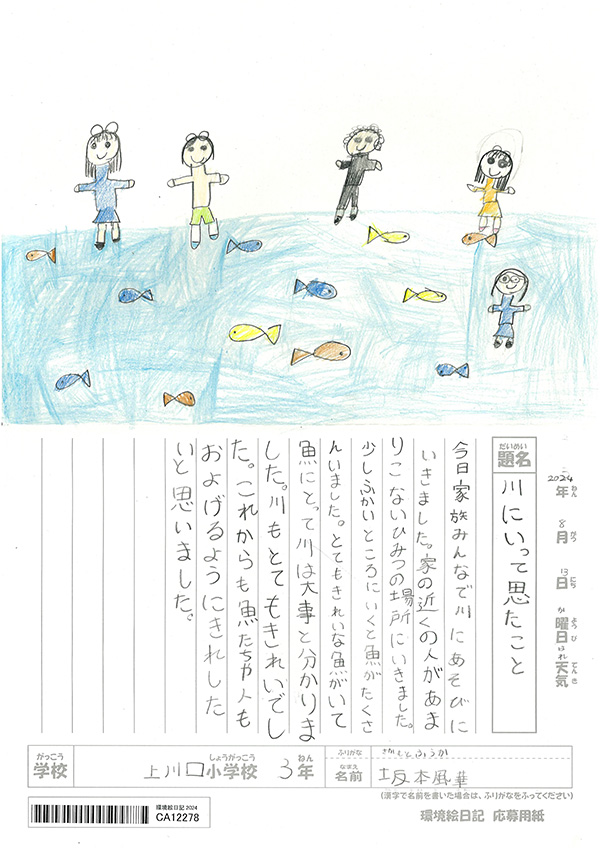 2024年 8月 13日 か曜日 はれ天気
ねん がつ にち ようび てんき
だいめい
題名
川にいって思たこと
今日家族みんなで川にあそびに
いきました。家の近くの人があま
りこないひみつの場所にいきました。
少しふかいところにいくと魚がたくさ
んいました。とてもきれいな魚がいて
魚にとって川は大事と分かりま
した。川もとてもきれいでし
た。これからも魚たちや人も
およげるようにきれした
いと思いました。
がっこう
学校
上川口小学校 3年
しょうがっこう ねん
ふりがな
さかもとふうか
なまえ
名前
坂本風華
(漢字で名前を書いた場合は、ふりがなをふってください)
環境絵日記 2024
CA12278
環境絵日記 応募用紙